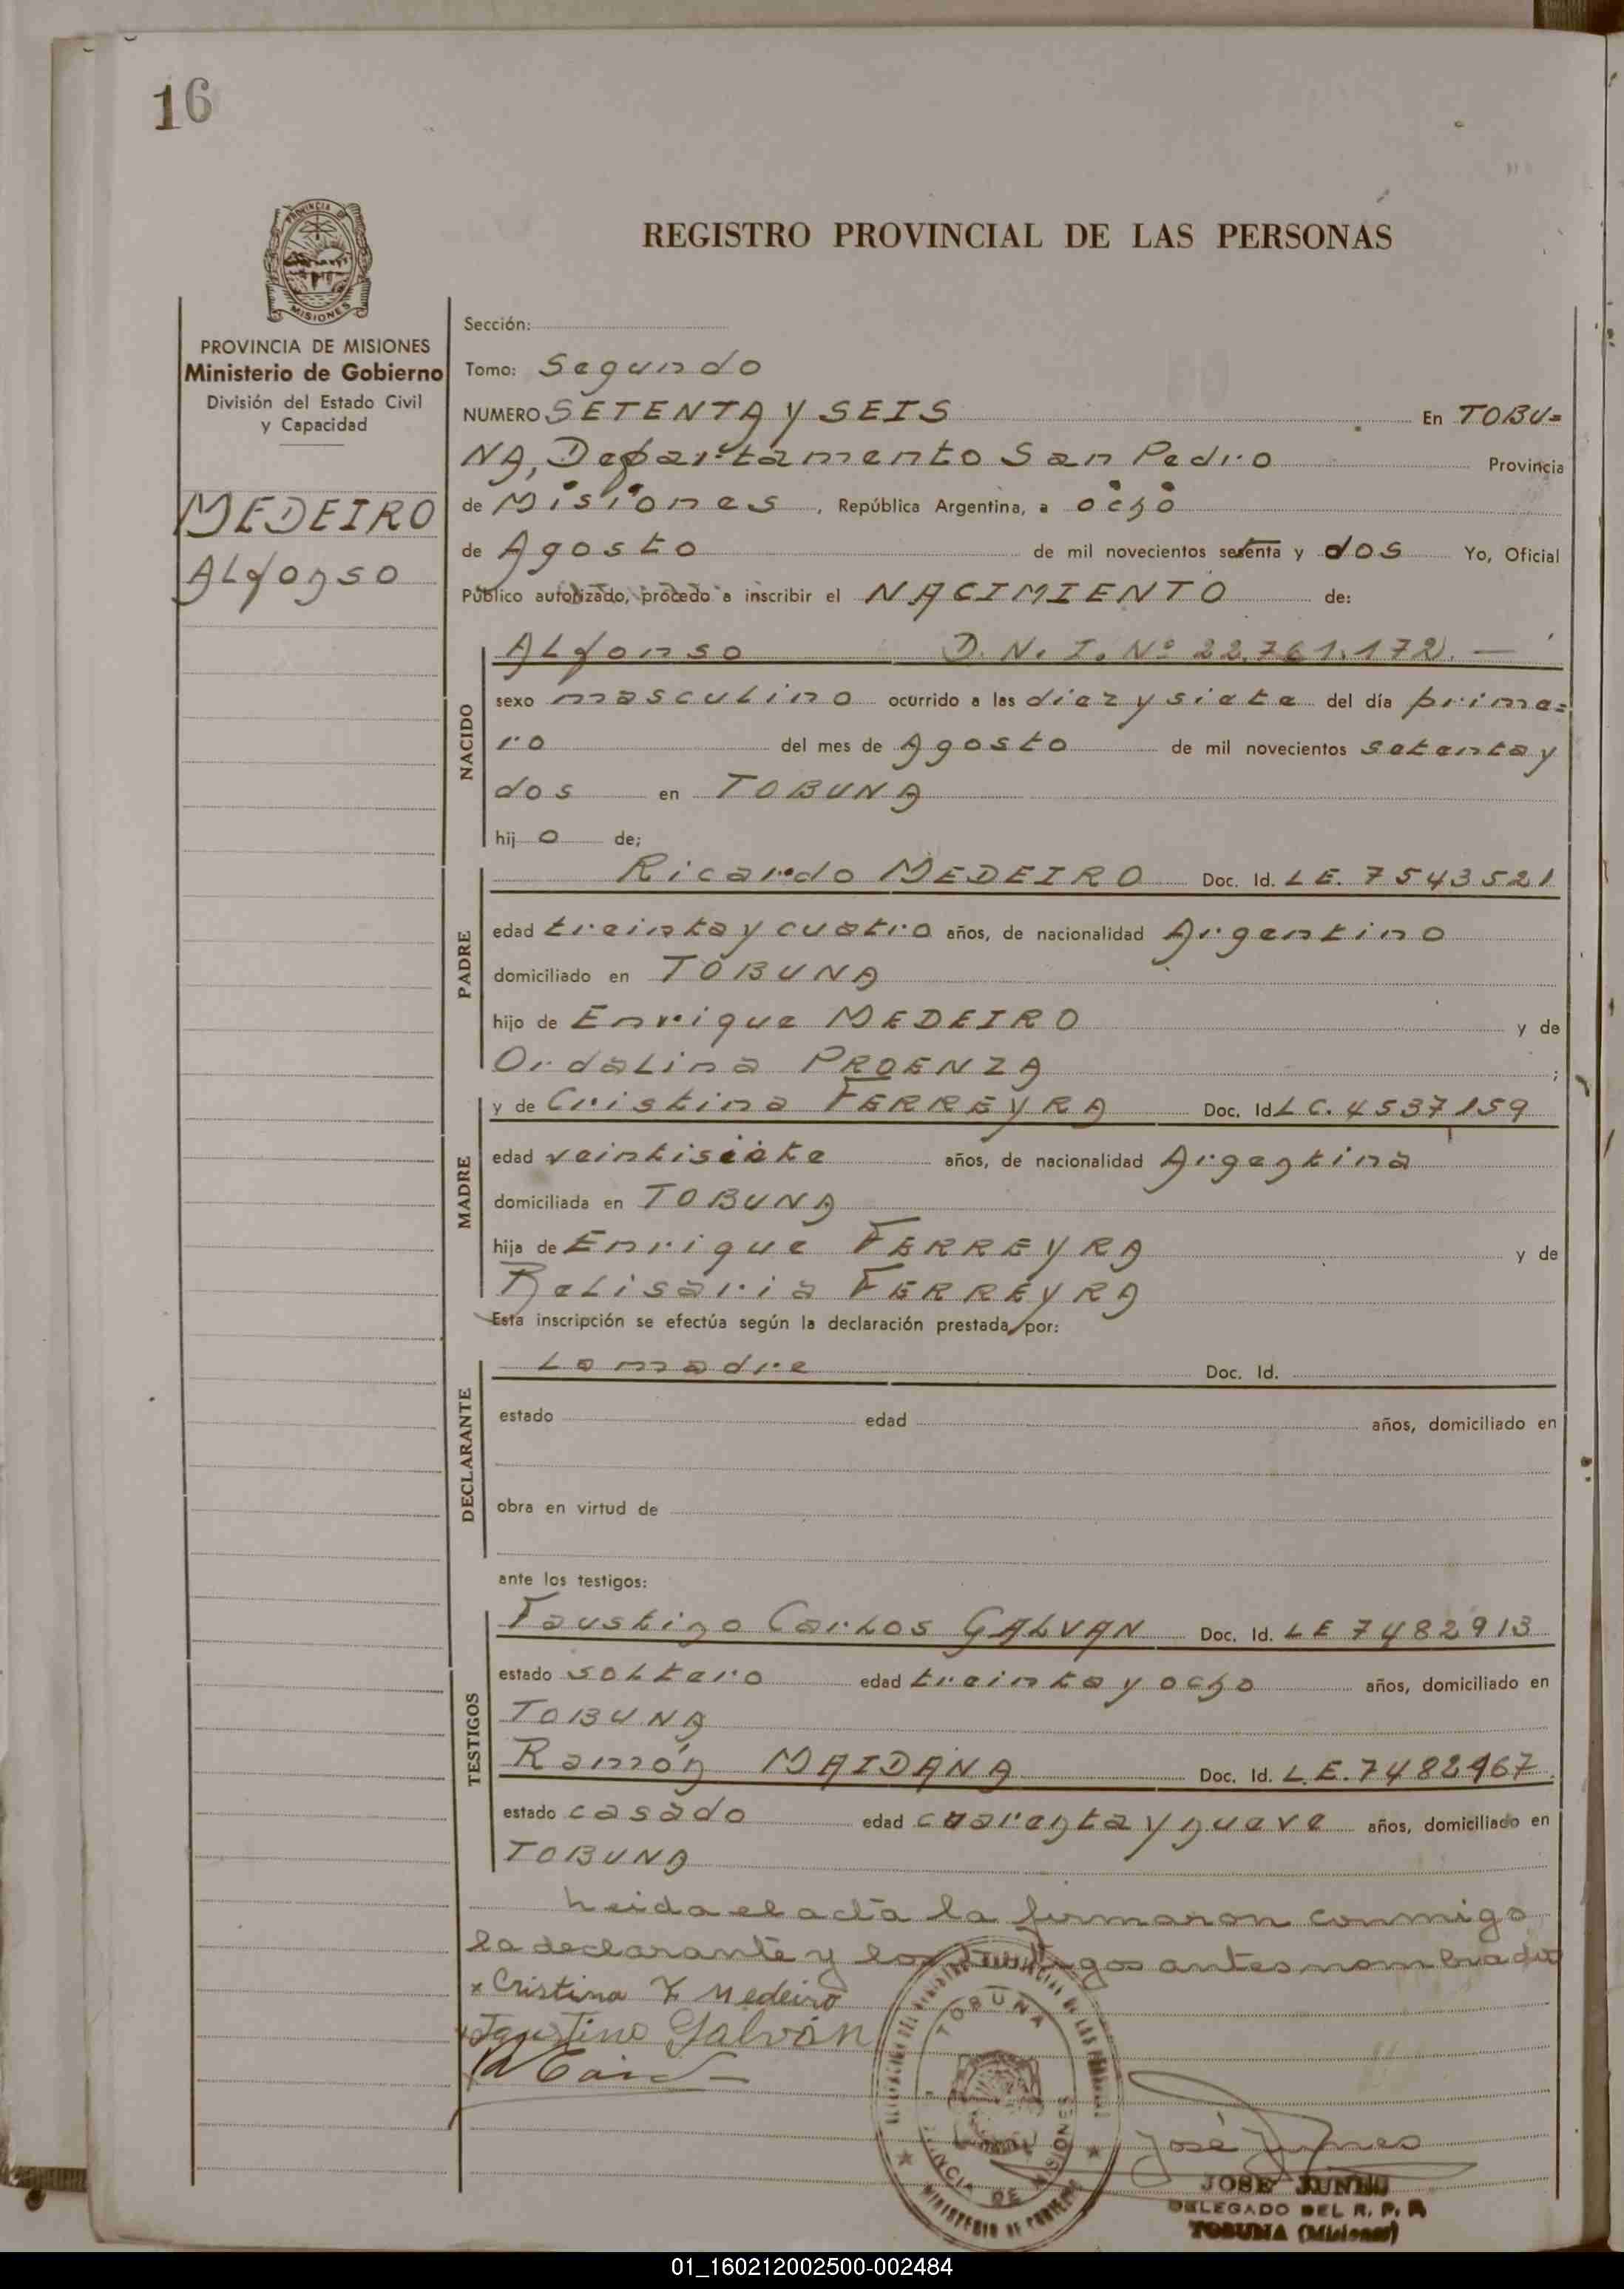 16
PROVINCIA DE
MISIONES
REGISTRO PROVINCIAL DE LAS PERSONAS
PROVINCIA DE MISIONES
Ministerio de Gobierno
División del Estado Civil
y Capacidad
MEDEIRO
ALfonso
Sección:
Tomo: Segundo
NUMERO SETENTA y SEIS En TOBU=
NA, Departamento San Pedro Provincia
de Misiones, República Argentina, a ocho
de Agosto de mil novecientos setenta y dos Yo, Oficial
Público autorizado, procedo a inscribir el NACIMIENTO de:
NACIDO
ALfonso D. N. I. Nº 22.761.172. —
sexo masculino ocurrido a las diez y siete del día prime=
ro del mes de Agosto de mil novecientos setenta y
dos en TOBUNA
hijo de;
PADRE
Ricardo MEDEIRO Doc. Id. LE. 7543521
edad treinta y cuatro años, de nacionalidad Argentino
domiciliado en TOBUNA
hijo de Enrique MEDEIRO y de
OrdaLina PROENZA ;
MADRE
y de Cristina FERREYRA Doc. Id LC. 4537159
edad veintisiete años, de nacionalidad Argentina
domiciliada en TOBUNA
hija de Enrique FERREYRA y de
BeLisaria FERREYRA
Esta inscripción se efectúa según la declaración prestada por:
DECLARANTE
La madre Doc. Id.
estado edad años, domiciliado en
obra en virtud de
ante los testigos:
TESTIGOS
Faustino CarLos GALVAN Doc. Id. LE 7482913
estado soLtero edad treinta y ocho años, domiciliado en
TOBUNA
Ramón MAIDANA Doc. Id. L.E. 7482967.
estado casado edad cuarenta y nueve años, domiciliado en
TOBUNA
Leida el acta la firmaron conmigo
la declarante y los testigos antes nombrados
x Cristina F Medeiro
Faustino Galván
TOBUNA
PROVINCIA DE MISIONES
MINISTERIO DE GOBIERNO
José Junes
JOSE JUNES
DELEGADO DEL R. P. P.
TOBUNA (Misiones)
01_160212002500-002484